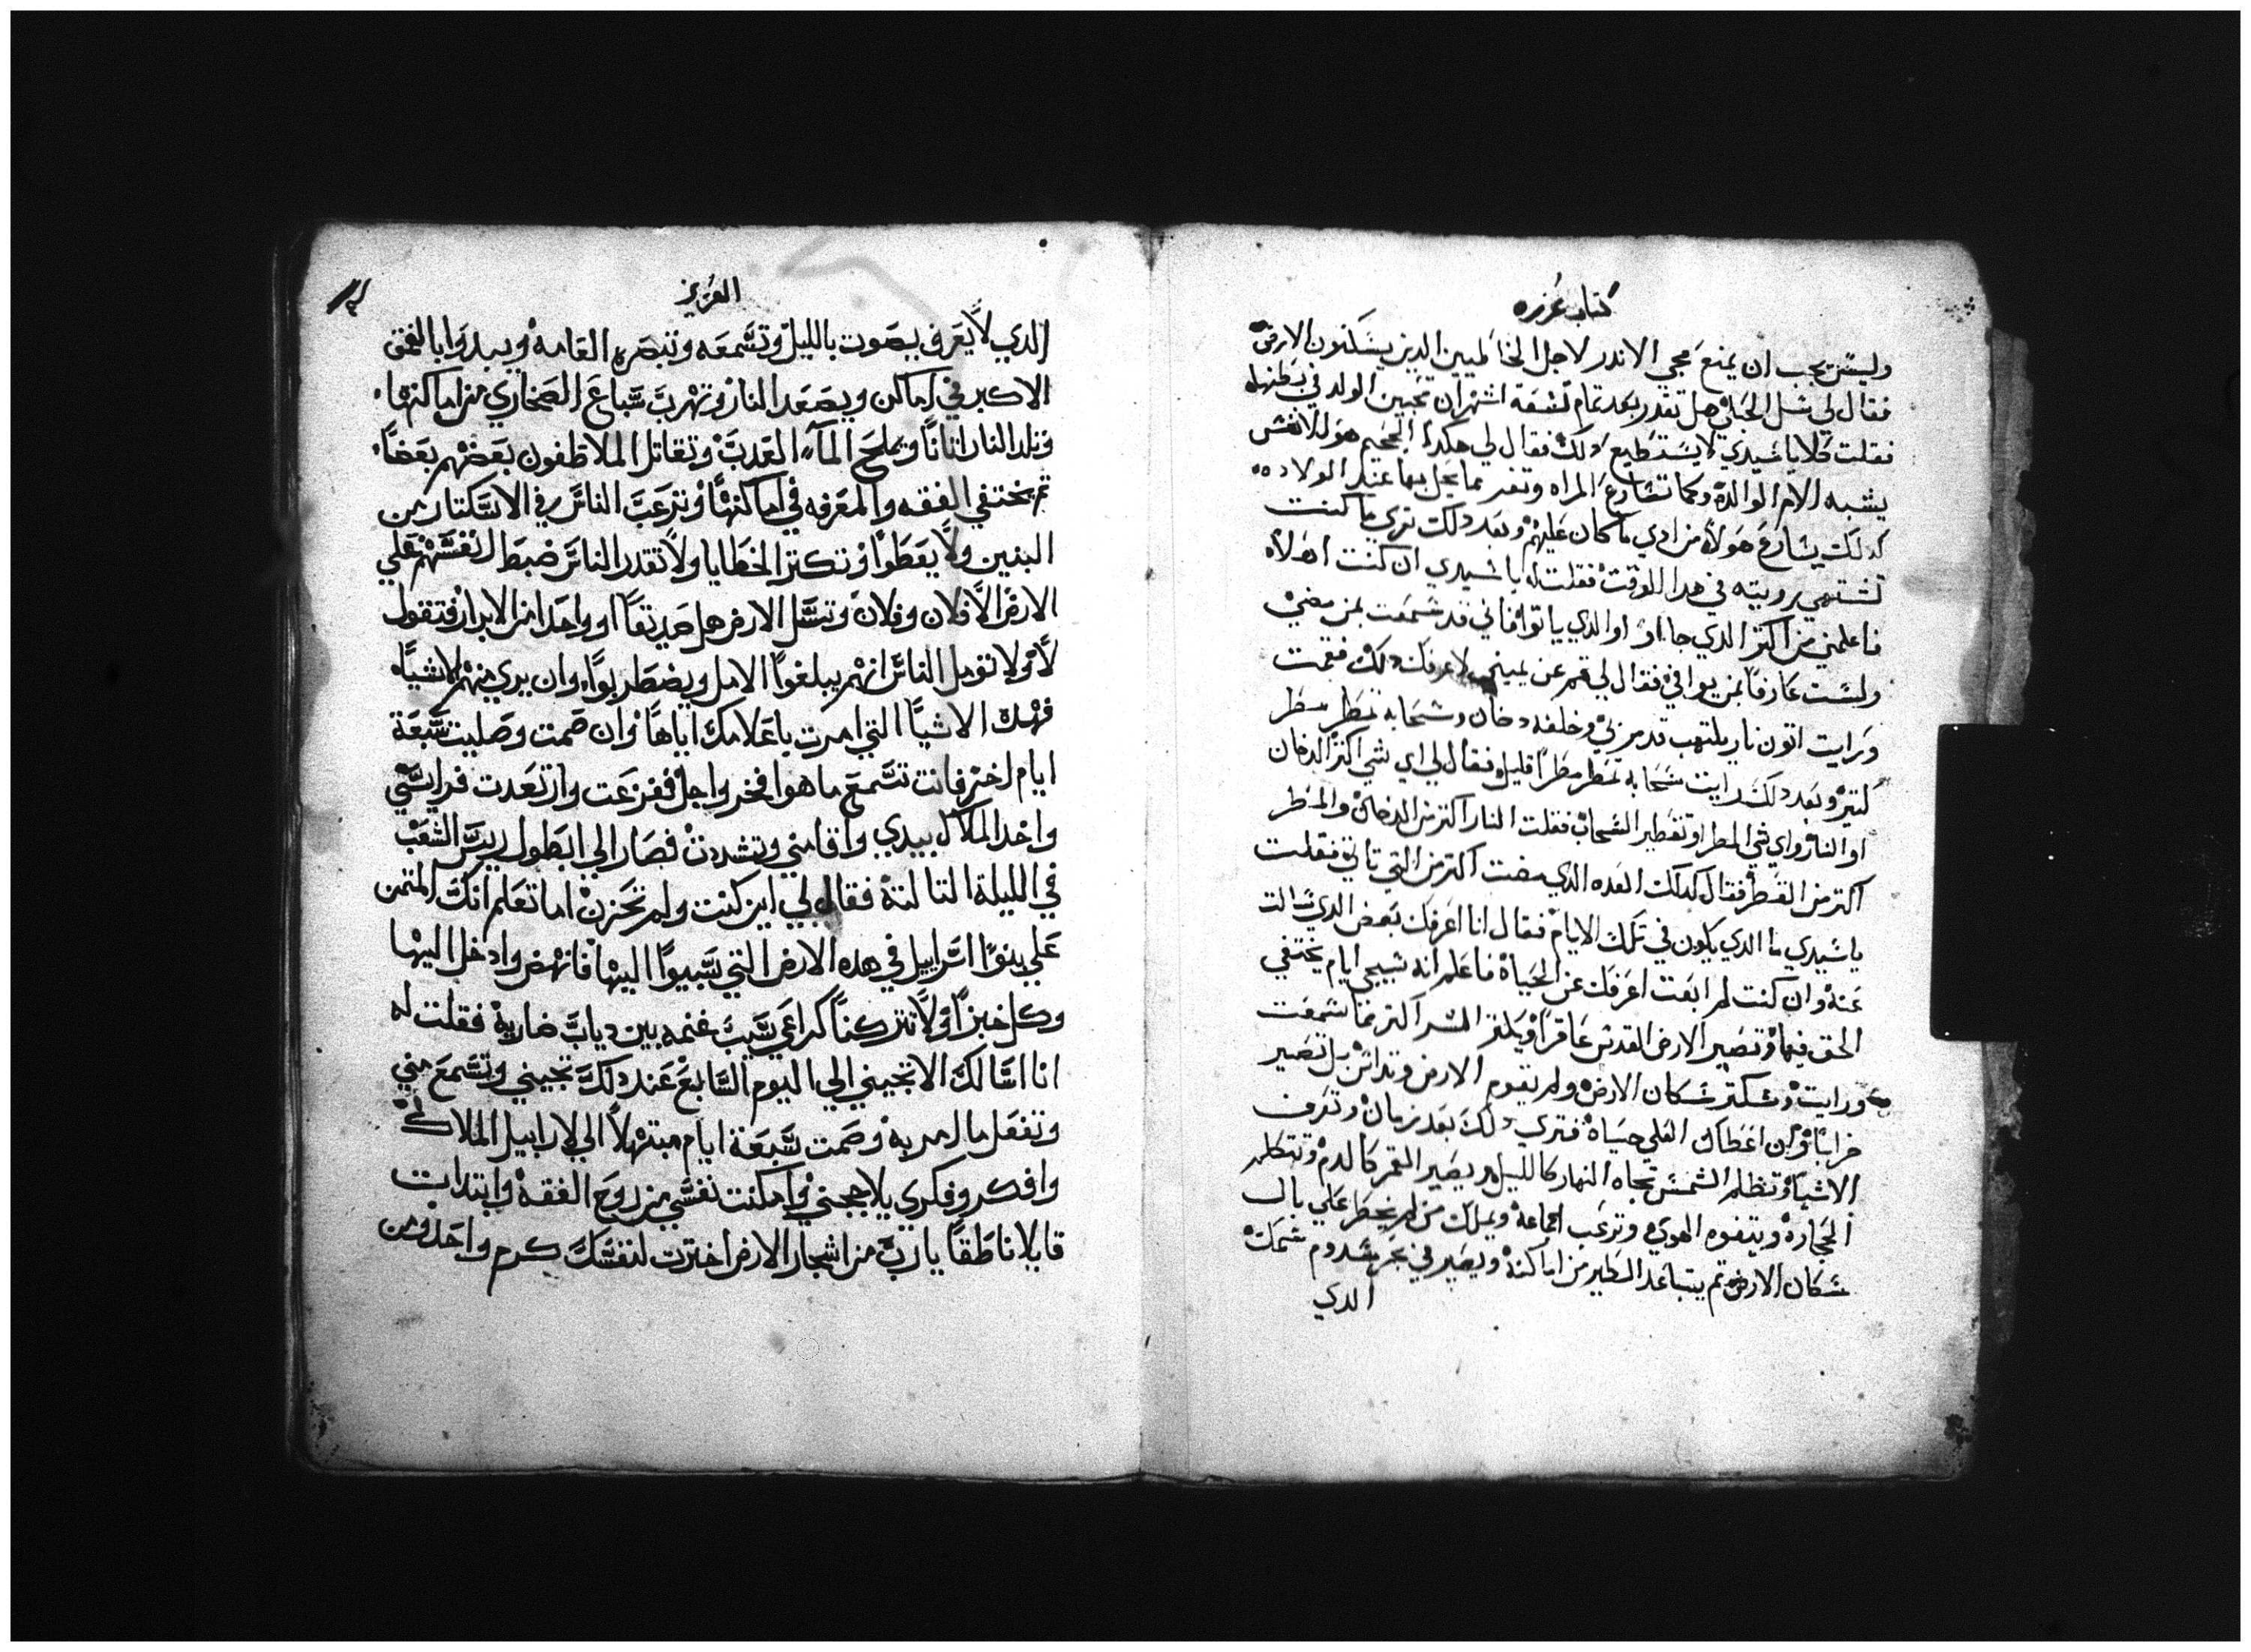 كتاب عزره
وليس يجب ان يمنع مجي الاندر لاجل الخاطيين الدين يسكنون الارض
فقال لي سل الحبلي هل تقدر بعد تمام تسعة اشهر ان تحبس الولد في بطنها
فقلت كلا يا سيدي لا يستطيع دلك فقال لي هكدا الجحيم هو للانفس
يشبه الام الوالدة وكما تسارع المراه وتفر مما يحل بها عند الولاده
كدلك يسارع هولاء من ادي ما كان عليهم وبعد دلك تري ما كنت
تشتهي رويته في هدا الوقت فقلت له يا سيدي ان كنت اهلا
فاعلمني من اكتر الدي جااو او الدي ياتوا فاني قد سمعت بمن مضي
ولست عارفا بمن يوافي فقال لي قم عن يميني لاعرفك دلك فقمت
ورايت اتون نار يلتهب قد مر بي وخلفه دخان وسحابه تمطر مطر
كتير وبعد دلك رايت سحابه تمطر مطرا قليل فقال لي اي شي اكتر الدخان
او النار واي شي المطر او تقطير السحاب فقلت النار اكتر من الدخان والمطر
اكتر من القطر فقال كدلك العده الدي مضت اكتر من التي تاتي فقلت
يا سيدي ما الدي يكون في تلك الايام فقال انا اعرفك بعض الدي سالت
عنه وان كنت لم ابعت اعرفك عن الحياة فاعلم انه سيجي ايام يختفي
الحق فيها وتصير الارض القدس عاقرا ويكتر الشر اكتر مما سمعت
ورايت سكان الارض ولم تقوم الارض وتداس بل تصير
خرابا وان اعطاك العلي حياة فتري دلك بعد زمان وتعرف
الاشيا وتظلم الشمس تجاه النهار كالليل ويصير القمر كالدم وتتكلم
الحجارة ويتفوه الهوي وترعب الجماعة ويملك من لم يخطر علي بال
سكان الارض تم يتباعد الطير من اماكنه ويصير في بحر سدوم سمك
الدي
العزيز
الدي لا يعرف يصوت بالليل وتسمعه وتبصره العامه ويبدوا بالعمق
الاكبر في اماكن ويصعد النار وتهرب سباع الصحاري من اماكنها
وتلد النار اناثا ويملح المآء العدب وتقاتل الملاطفون بعضهم بعضا
تم يختفي الفقه والمعرفه في اماكنها وترعب الناس في الاستكتار من
البنين ولا يعطوا وتكتر الخطايا ولا تقدر الناس ضبط انفسهم علي
الارض الا فلان وفلان وتسل الارض هل صديقا او واحدا من الابرار فتقول
لا ولا تومل الناس انهم يبلغوا الامل ويضطربوا وان يري منهم الاشيا
فهده الاشيا التي امرت باعلامك اياها وان صمت وصليت سبعة
ايام اخر فانت تسمع ما هوا فخر واجل ففزعت وارتعدت فرايسي
واخد الملاك بيدي واقامني وتشددت فصار الي ابطول ريس الشعب
في الليلة التالتة فقال لي اين كنت ولم تحزن اما تعلم انك المتمن
علي بنوا اسراييل في هده الارض التي سبيوا اليها فانهض وادخل اليها
وكل خبزا ولا تتركنا كراعي سيب غنمه بين دياب ضارية فقلت له
انا اسالك الا تجيني الي اليوم السابع عند دلك تجيني وتسمع مني
وتفعل ما امر به وصمت سبعة ايام مبتهلا الي لارابيل الملاك
وافكر وفكري يلاججني وامكنت نفسي من روح الفقه وابتدات
قايلا ناطقا يا رب من اشجار الارض اخترت لنفسك كرم واحد ومن